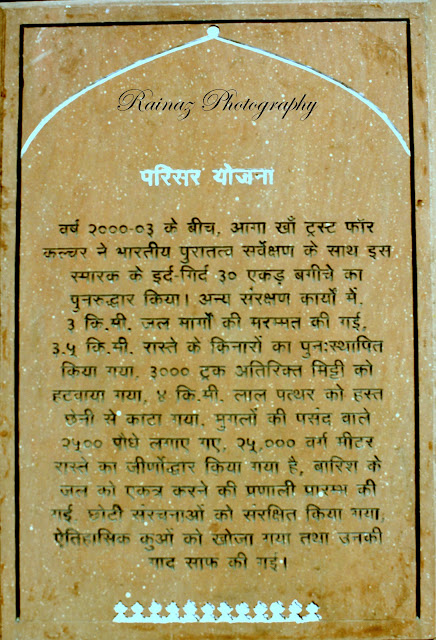 Rainaz Photography
परिसर योजना
वर्ष २०००-०३ के बीच, आगा खाँ ट्रस्ट फॉर
कल्चर ने भारतीय पुरातत्व सर्वेक्षण के साथ इस
स्मारक के इर्द-गिर्द ३० एकड़ बगीचे का
पुनरुद्धार किया। अन्य संरक्षण कार्यों में,
३ कि.मी. जल मार्गों की मरम्मत की गई,
३.५ कि.मी. रास्ते के किनारों का पुनःस्थापित
किया गया, ३००० ट्रक अतिरिक्त मिट्टी को
हटवाया गया, ४ कि.मी. लाल पत्थर को हस्त
छेनी से काटा गया, मुगलों की पसंद वाले
२५०० पौधे लगाए गए, २५,००० वर्ग मीटर
रास्ते का जीर्णोद्धार किया गया है, बारिश के
जल को एकत्र करने की प्रणाली प्रारम्भ की
गई. छोटी संरचनाओं को संरक्षित किया गया,
ऐतिहासिक कुओं को खोजा गया तथा उनकी
गाद साफ की गई।